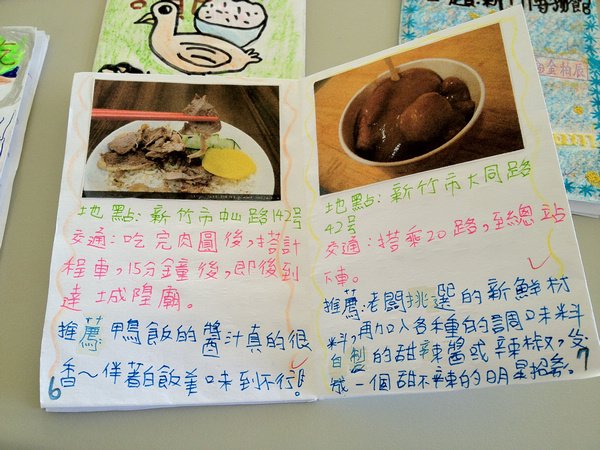 地點:新竹市中山路142號
交通:吃完肉圓後,搭計
程車,15分鐘後,即後到
達城隍廟。
推薦:鴨飯的醬汁真的很
香~伴著白飯美味到不行!
6
地點:新竹市大同路
42号
交通:搭乘20路,到總站
下車。
推薦:老闆挑選的新鮮材
料,再加入各種的調味料
自製的甜辣醬或辣椒,
成一個甜不辣的明星招
7